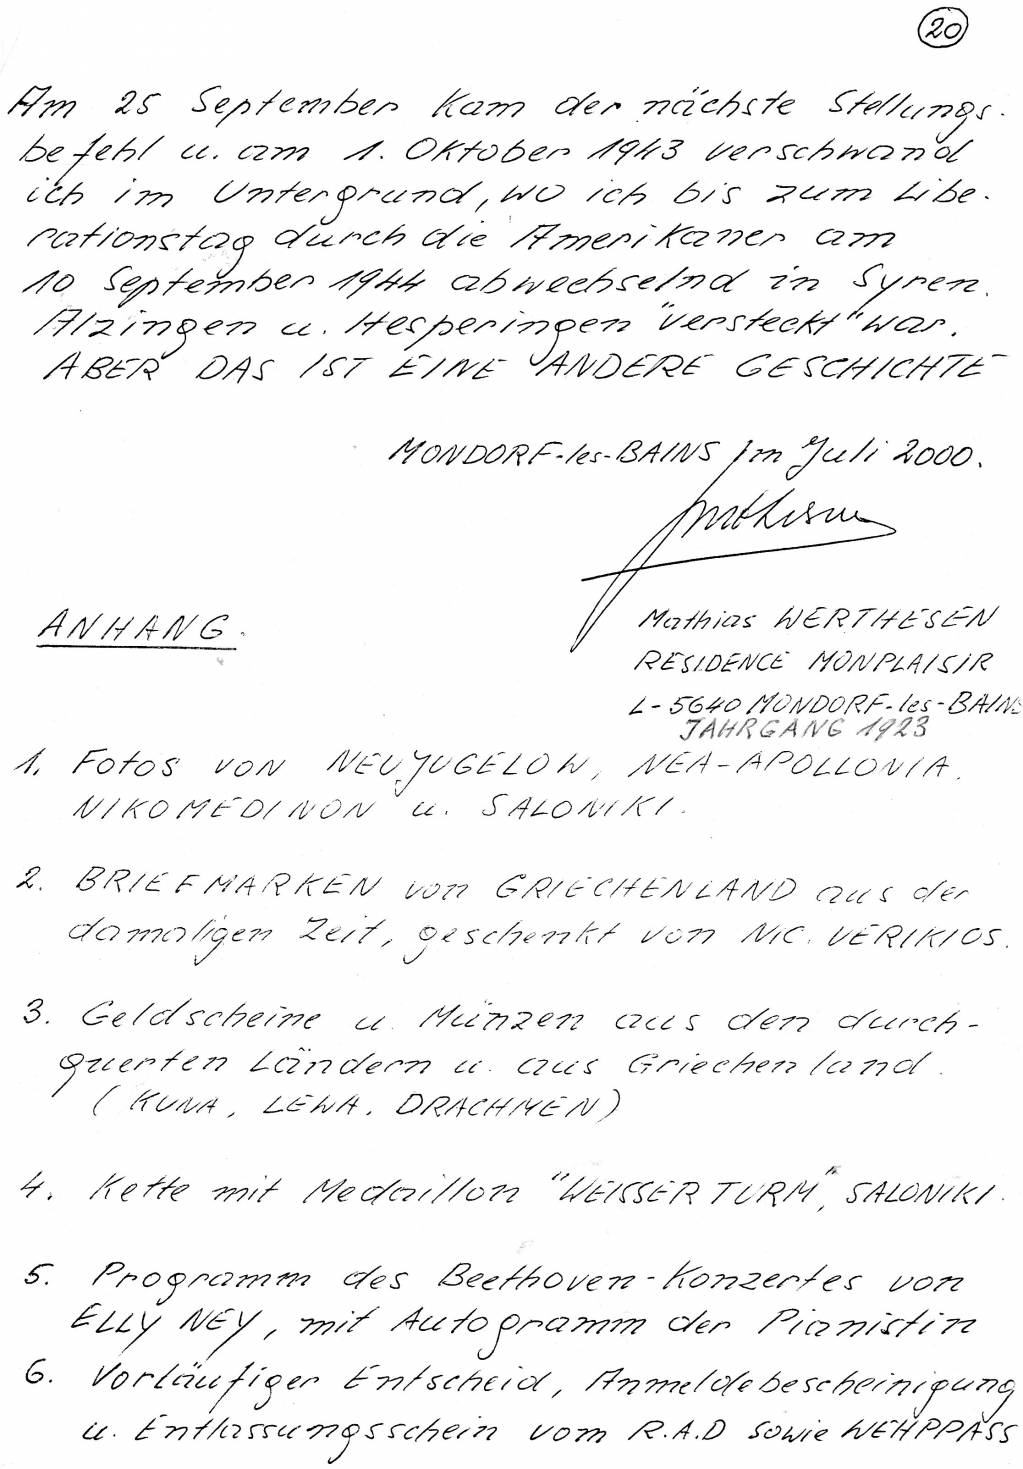 20
Am 25 September kam der nächste Stellungs-
befehl u. am 1. Oktober 1943 verschwand
ich im Untergrund, wo ich bis zum Libe-
rationstag durch die Amerikaner am
10 September 1944 abwechselnd in Syren.
Alzingen u. Hesperingen "versteckt" war.
ABER DAS IST EINE ANDERE GESCHICHTE
MONDORF-les-BAINS Im Juli 2000.
ANHANG.
Mathias WERTHESEN
RESIDENCE MONPLAISIR
L-5640 MONDORF-les-BAINS
JAHRGANG 1923
1. Fotos von NEUJUGELOW, NEA-APOLLONIA,
NIKOMEDINON u. SALONIKI.
2. BRIEFMARKEN von GRIECHENLAND aus der
damaligen Zeit, geschenkt von NIC. VERIKIOS.
3. Geldscheine u. Münzen aus den durch-
querten Ländern u. aus Griechenland.
(KUNA, LEWA, DRACHMEN)
4. Kette mit Medaillon "WEISSER TURM", SALONIKI.
5. Programm des Beethoven-Konzertes von
ELLY NEY, mit Autogramm der Pianistin
6. Vorläufiger Entscheid, Anmeldebescheinigung
u. Entlassungsschein vom R.A.D sowie WEHRPASS